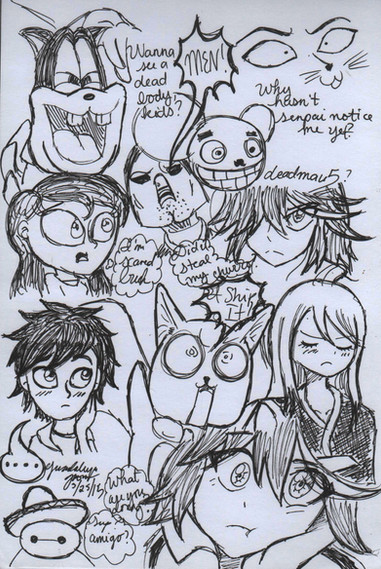 Wanna
see a
dead
body
kids?
MEN!
Why
hasn't
senpai notice
me yet.
deadmau5?
I'm
grand
Did I
steal
my chuvvy
I Ship
It!
What
are you
doing?
Sup
amigo?